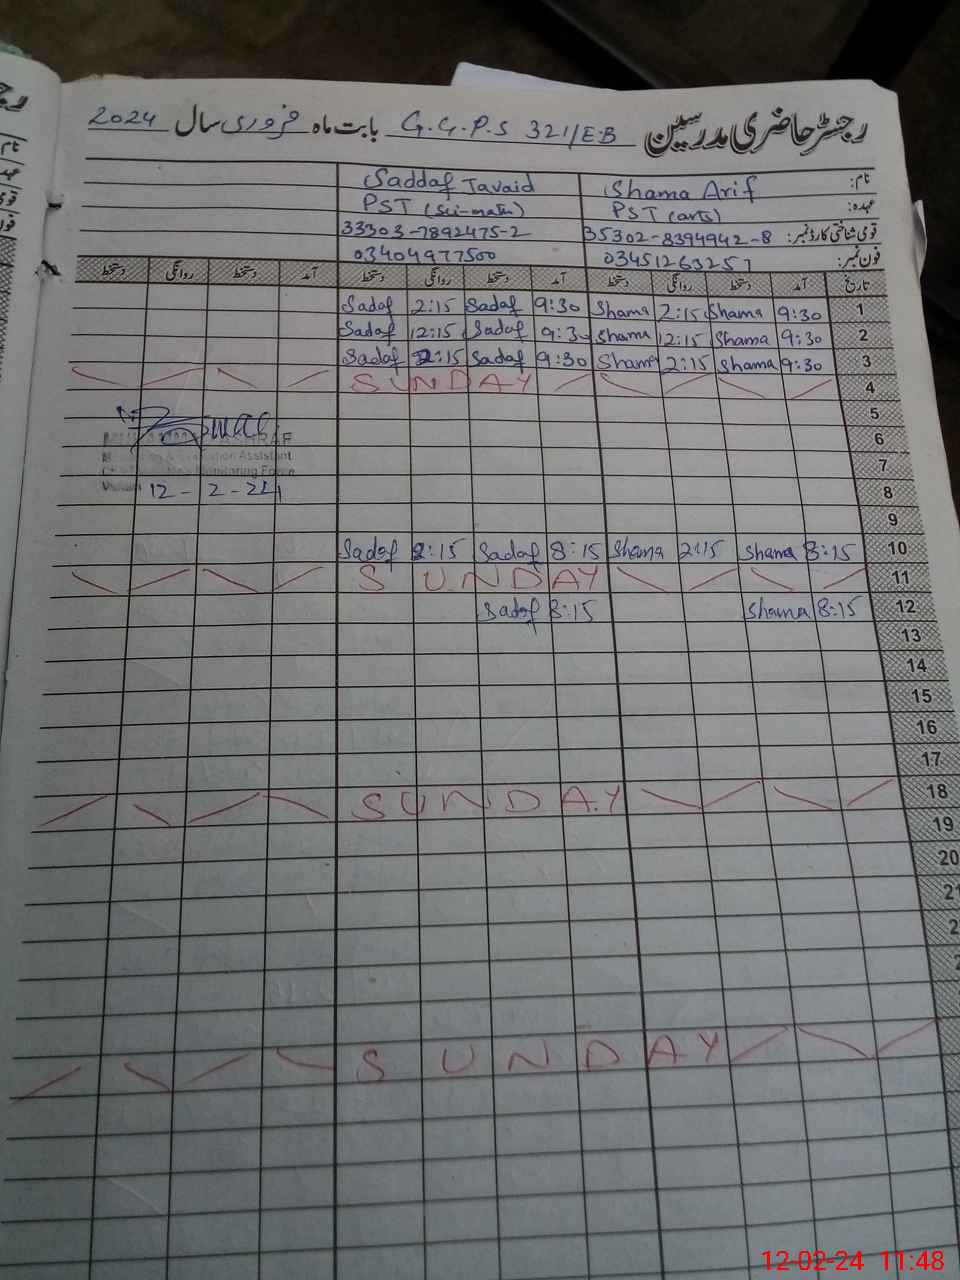 رجسٹر حاضری مدرسین G.G.P.S 321/EB بابت ماہ فروری سال 2024
نام: Shama Arif Saddaf Javaid
عہدہ: PST (arts) PST (Sci-math)
قومی شناختی کارڈ نمبر: 35302-8394942-8 33303-7892475-2
فون نمبر: 03451263257 03404977500
تاریخ آمد دستخط روانگی دستخط آمد دستخط روانگی دستخط آمد دستخط روانگی دستخط
1 9:30 Shama 2:15 Shama 9:30 Sadaf 2:15 Sadaf
2 9:30 Shama 12:15 Shama 9:3 Sadaf 12:15 Sadaf
3 9:30 Shama 2:15 Sham 9:30 Sadaf 2:15 Sadaf
4 SUNDAY
5
6 ASHRAF
Assistant
7 Monitoring Force
8 12-2-24
9
10 8:15 Shama 2:15 Shama 8:15 Sadaf 2:15 Sadaf
11 SUNDAY
12 8:15 Shama 8:15 Sadaf
13
14
15
16
17
18 SUNDAY
19
20
SUNDAY
12-02-24 11:48